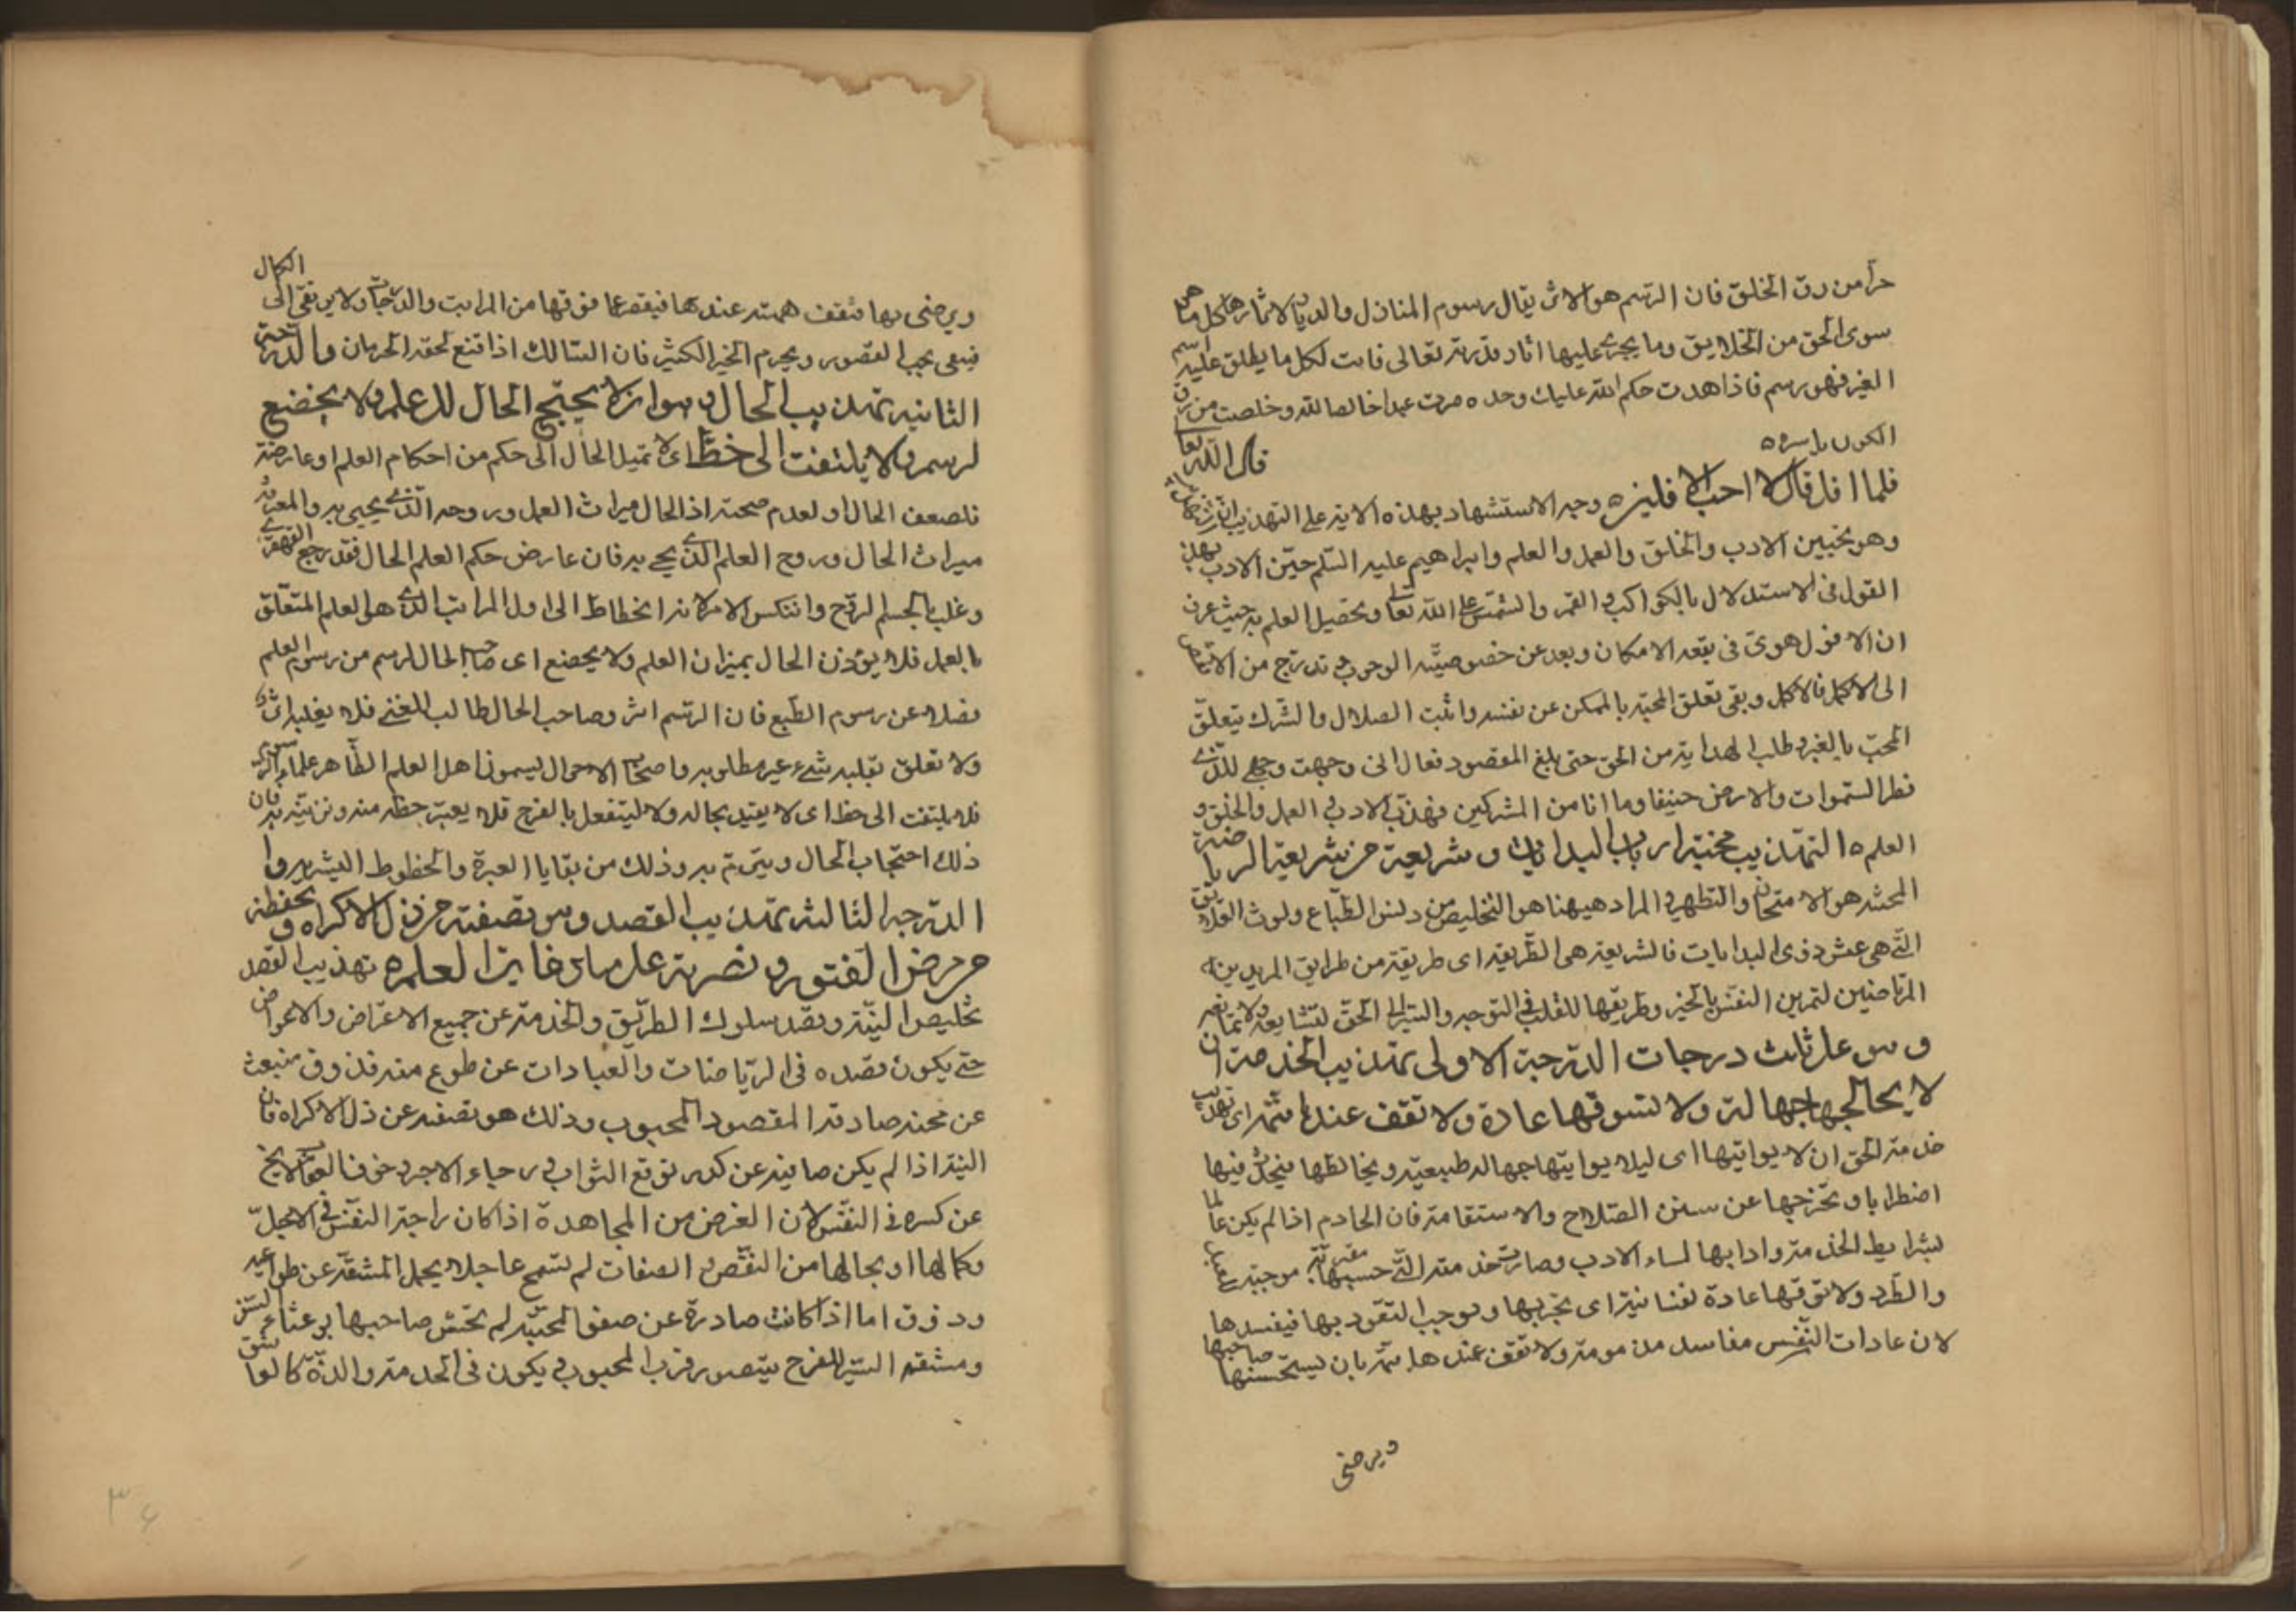 حرا من رق الخلق فان الرسم هو الاثر يقال رسوم المنازل والديار لاثارها وكل ما هو
سوى الحق من الخلايق وما يجرى عليها اثار قدرته تعالى فانت لكل ما يطلق عليه اسم
الغير فهو رسم فاذا شاهدت حكم الله عليك وحده صرت عبدا خالصا لله وخلصت من رق
الكون باسره قال الله تعالى
فلما افل قال لا احب الافلين ه وجه الاستشهاد بهذه الاية على التهذيب
وهو تحسين الادب والخلق والعمل والعلم وابراهيم عليه السلم حسن الادب بهذا
القول فى الاستدلال بالكواكب والقمر والشمس على الله تعالى وتحصيل العلم به حيث عرف
ان الافول هوى فى بقعة الامكان وبعد عن خصوصية الوجوب وتدرج من الانقص
الى الاكمل فالاكمل وبقى تعلق المحبة بالممكن عن نفسه واثبت الضلال والشرك بتعلق
المحب بالغير وطلب الهداية من الحق حتى بلغ المقصود فقال انى وجهت وجهى للذى
فطر السموات والارض حنيفا وما انا من المشركين فهذب الادب فى العمل والخلق و
العلم ه التهذيب محنة ارباب البدايات وشريعة من شريعة الرياضة
المحنة هو الامتحان والتطهير والمراد هيهنا هو التخليص من دنس الطباع ولوث العلايق
التى هى عش ذوى البدايات فالشريعة هى الطريقة اى طريقة من طرايق المريدين
المرتاضين لتمرين النفس بالخير وطريقها للقلب فى التوجه والسير الى الحق لتشايعه ولا تمانعه
وهو على ثلث درجات الدرجة الاولى تهذيب الخدمة ان
لا يخالجها جهالة ولا تسوقها عادة ولا تقف عندها همة اى تهذيب
خدمة الحق ان لا يواتيها اى ليلا يواتيها جهالة طبيعية ويخالطها فيخل فيها
اضطرابا وتخرجها عن سنن الصلاح والاستقامة فان الخادم اذا لم يكن عالما
بشرايط الخدمة وادابها لساء الادب وصارت خدمته التى حسبها مقربة موجبة
والطرد ولا تسوقها عادة نفسانية اى تجربها وتوجب التعود بها فيفسدها
لان عادات النفس مفاسد مذمومة ولا تقف عندها همة بان يستحسنها صاحبها
ويرضى
ويرضى بها فتقف همته عندها فيقصر عما فوقها من المراتب والدرجات ولا يرتقى الى الكمال
فيبقى بحب القصور ويحرم الخير الكثير فان السالك اذا قنع لحقه الحرمان والدرجة
الثانية تهذيب الحال وهو ان لا يجنح الحال الى علم ولا يخضع
لرسم ولا يلتفت الى حظ اى لا تميل الحال الى حكم من احكام العلم او عارضته
فلضعف الحال او لعدم صحته اذ الحال ميراث العمل وروحه الذى يحيى به والمعرفة
ميراث الحال وروح العلم الذى يحيى به فان عارض حكم العلم الحال فقد رجع القهقرى
وغلب الجسم الروح وانتكس الامر لانه انحطاط الى اول المراتب الذى هو العلم المتعلق
بالعمل فلا يوزن الحال بميزان العلم ولا يخضع اى صاحب الحال لرسم من رسوم العلم
فضلا عن رسوم الطبع فان الرسم اثر وصاحب الحال طالب للمعنى فلا يغلبه اثر
ولا تعلق بقلبه شىء غير مطلوبه واصحاب الاحوال يسمون اهل العلم الظاهر علماء الرسوم
فلا يلتفت الى حظ اى لا يقيد بحاله ولا لينفعل بالفرح فلا يعتبر حظه منه ونزينه به فان
ذلك احتجاب الحال ويتوهم به وذلك من بقايا العبرة والحظوظ البشرية وا
الدرجة الثالثة تهذيب القصد وهو تصفيته من ذل الاكراه وحفظه
من مرض الفتور ونصرته على منازعات العلم ه تهذيب القصد
تخليص النية وقصد سلوك الطريق والخدمة عن جميع الاغراض والاعواض
حتى يكون قصده فى الرياضات والعبادات عن طوع منه وذوق منبعث
عن محبة صادقة المقصود المحبوب وذلك هو تصفيته عن ذل الاكراه فان
النية اذا لم يكن صافية عن كدر توقع الثواب ورجاء الاجر وخوف العقاب لا يخ
عن كسره فى النفس لان الغرض من المجاهدة اذا كان راحة النفس فى الاجل
وكمالها او بجمالها من النقص فى الصفات لم تسمح عاجلا بحمل المشقة عن طواعية
وذوق اما اذا كانت صادرة عن صفو المحبة لم يخش صاحبها بوعثاء السفر
ومشقة السير للفرح بتصور قرب المحبوب ويكون فى الخدمة والذة كالعاشق
٣٤